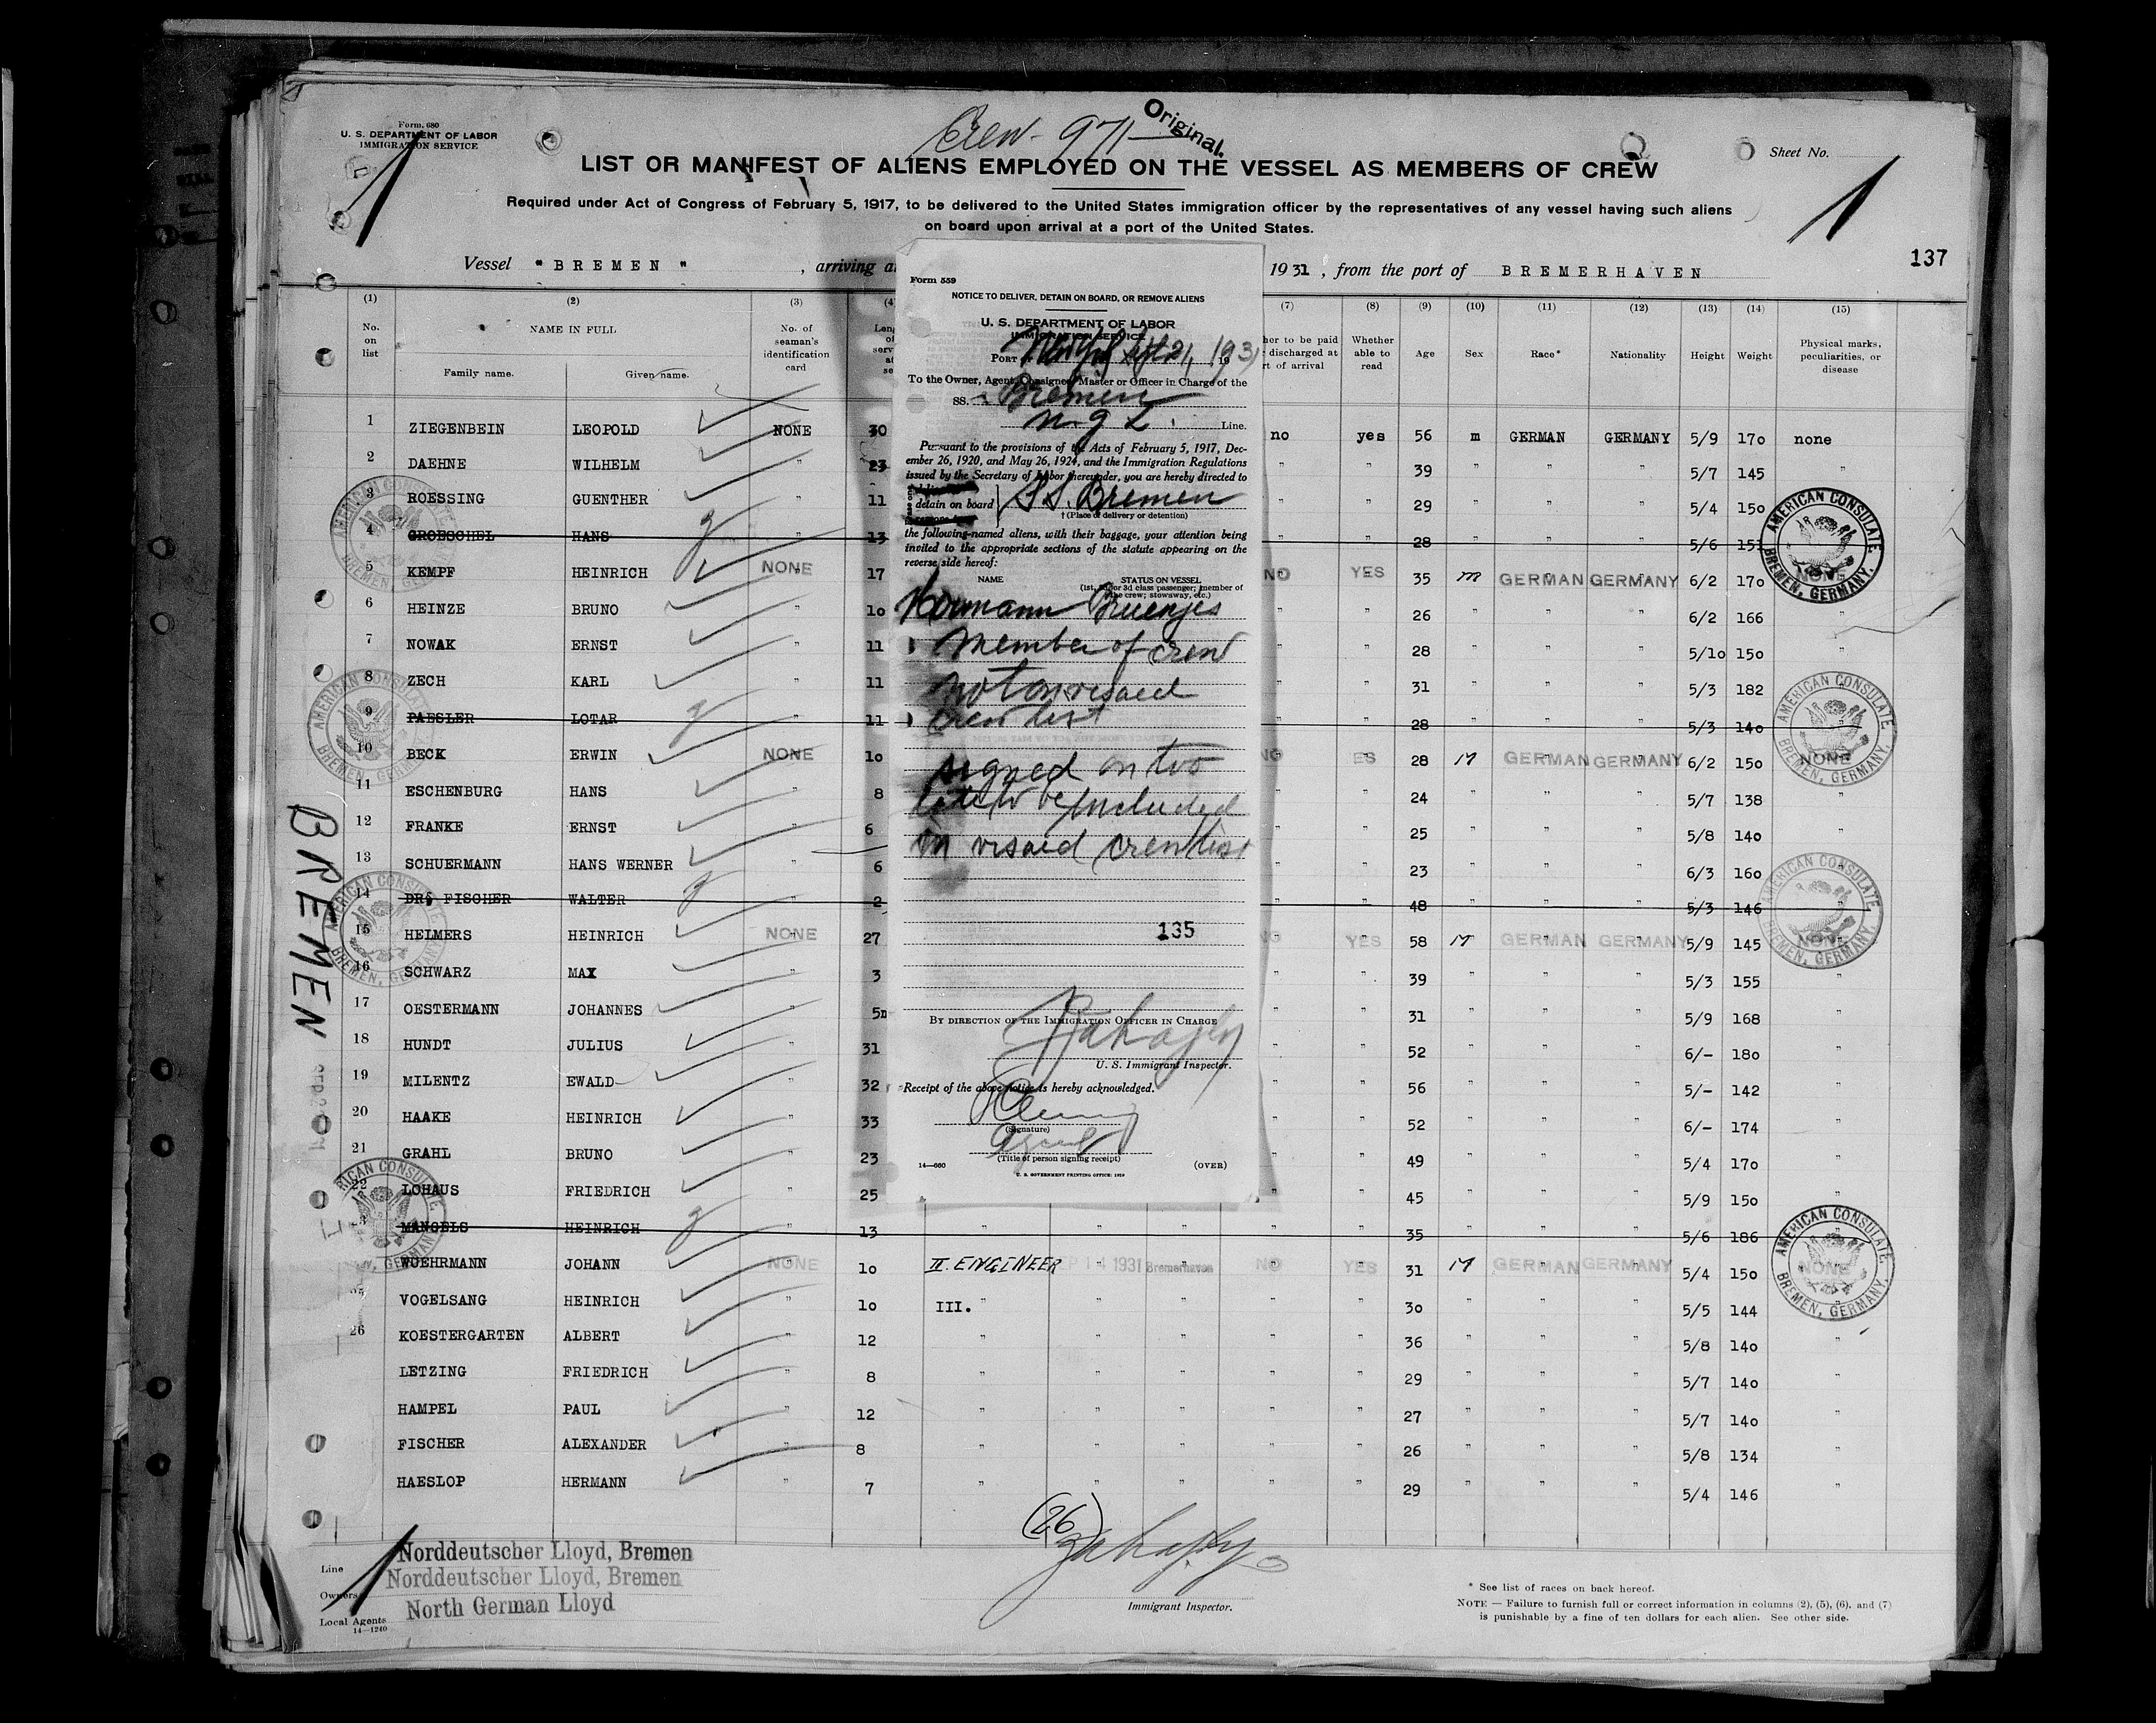 Form 680
U. S. DEPARTMENT OF LABOR
IMMIGRATION SERVICE
1
Crew - 971
Original.
Sheet No.
1
LIST OR MANIFEST OF ALIENS EMPLOYED ON THE VESSEL AS MEMBERS OF CREW
Required under Act of Congress of February 5, 1917, to be delivered to the United States immigration officer by the representatives of any vessel having such aliens
on board upon arrival at a port of the United States.
137
Vessel "BREMEN", arriving 1931, from the port of BREMERHAVEN
(1) (2) (3) (7) (8) (9) (10) (11) (12) (13) (14) (15)
No. on list
NAME IN FULL
Family name. Given name.
No. of seaman's identification card
to be paid discharged at of arrival
Whether able to read
Age Sex Race* Nationality Height Weight
Physical marks, peculiarities, or disease
1 ZIEGENBEIN LEOPOLD NONE 30 no yes 56 m GERMAN GERMANY 5/9 170 none
2 DAEHNE WILHELM " 23 " " 39 " " " 5/7 145 "
3 ROESSING GUENTHER " 11 " " 29 " " " 5/4 150
4 GROESCHEL HANS " 13 " " 28 " " " 5/6 151
5 KEMPF HEINRICH NONE 17 NO YES 35 m GERMAN GERMANY 6/2 170 NONE
6 HEINZE BRUNO " 10 " " 26 " " " 6/2 166 "
7 NOWAK ERNST " 11 " " 28 " " " 5/10 150 "
8 ZECH KARL " 11 " " 31 " " " 5/3 182 "
9 PAESLER LOTAR " 11 " " 28 " " " 5/3 140 "
10 BECK ERWIN NONE 10 NO ES 28 M GERMAN GERMANY 6/2 150 NONE
11 ESCHENBURG HANS " 8 " " 24 " " " 5/7 138 "
12 FRANKE ERNST " 6 " " 25 " " " 5/8 140 "
13 SCHUERMANN HANS WERNER " 6 " " 23 " " " 6/3 160 "
14 DR. FISCHER WALTER " 2 " " 48 " " " 5/3 146 "
15 HELMERS HEINRICH NONE 27 NO YES 58 M GERMAN GERMANY 5/9 145 NONE
16 SCHWARZ MAX " 3 " " 39 " " " 5/3 155 "
17 OESTERMANN JOHANNES " 5m " " 31 " " " 5/9 168 "
18 HUNDT JULIUS " 31 " " 52 " " " 6/- 180 "
19 MILENTZ EWALD " 32 " " 56 " " " 5/- 142 "
20 HAAKE HEINRICH " 33 " " 52 " " " 6/- 174 "
21 GRAHL BRUNO " 23 " " 49 " " " 5/4 170 "
22 LOHAUS FRIEDRICH " 25 " " 45 " " " 5/9 150 "
MANGELS HEINRICH " 13 " " " " " 35 " " " 5/6 186 "
WOEHRMANN JOHANN NONE 10 II. ENGINEER 1931 Bremerhaven NO YES 31 M GERMAN GERMANY 5/4 150 NONE
VOGELSANG HEINRICH " 10 III. " " " " " 30 " " " 5/5 144 "
26 KOESTERGARTEN ALBERT " 12 " " " " " 36 " " " 5/8 140 "
LETZING FRIEDRICH " 8 " " " " " 29 " " " 5/7 140 "
HAMPEL PAUL " 12 " " " " " 27 " " " 5/7 140 "
FISCHER ALEXANDER " 8 " " " " " 26 " " " 5/8 134 "
HAESLOP HERMANN " 7 " " " " " 29 " " " 5/4 146 "
Form 559
NOTICE TO DELIVER, DETAIN ON BOARD, OR REMOVE ALIENS
U. S. DEPARTMENT OF LABOR
IMMIGRATION SERVICE
PORT Sept 21, 1931
To the Owner, Agent, Consignee, Master or Officer in Charge of the
SS. Bremen
N. G. L. Line.
Pursuant to the provisions of the Acts of February 5, 1917, Dec-
ember 26, 1920, and May 26, 1924, and the Immigration Regulations
issued by the Secretary of Labor thereunder, you are hereby directed to
detain on board } S.S. Bremen
† (Place of delivery or detention)
the following-named aliens, with their baggage, your attention being
invited to the appropriate sections of the statute appearing on the
reverse side hereof:
NAME STATUS ON VESSEL
(1st, 2d or 3d class passenger; member of
the crew; stowaway, etc.)
Hermann Bruenjes
Member of crew
not on visaed
crew list
signed on too
late to be included
in visaed crew list
135
BY DIRECTION OF THE IMMIGRATION OFFICER IN CHARGE
U. S. Immigrant Inspector.
Receipt of the above notice is hereby acknowledged.
(Signature)
(Title of person signing receipt)
14—660 (OVER)
U. S. GOVERNMENT PRINTING OFFICE: 1929
AMERICAN CONSULATE
BREMEN, GERMANY.
AMERICAN CONSULATE
BREMEN, GERMANY.
AMERICAN CONSULATE
BREMEN, GERMANY.
AMERICAN CONSULATE
BREMEN, GERMANY.
BREMEN
(26)
Immigrant Inspector.
Line Norddeutscher Lloyd, Bremen
Owners Norddeutscher Lloyd, Bremen
Local Agents North German Lloyd
14—1240
* See list of races on back hereof.
NOTE — Failure to furnish full or correct information in columns (2), (5), (6), and (7)
is punishable by a fine of ten dollars for each alien. See other side.